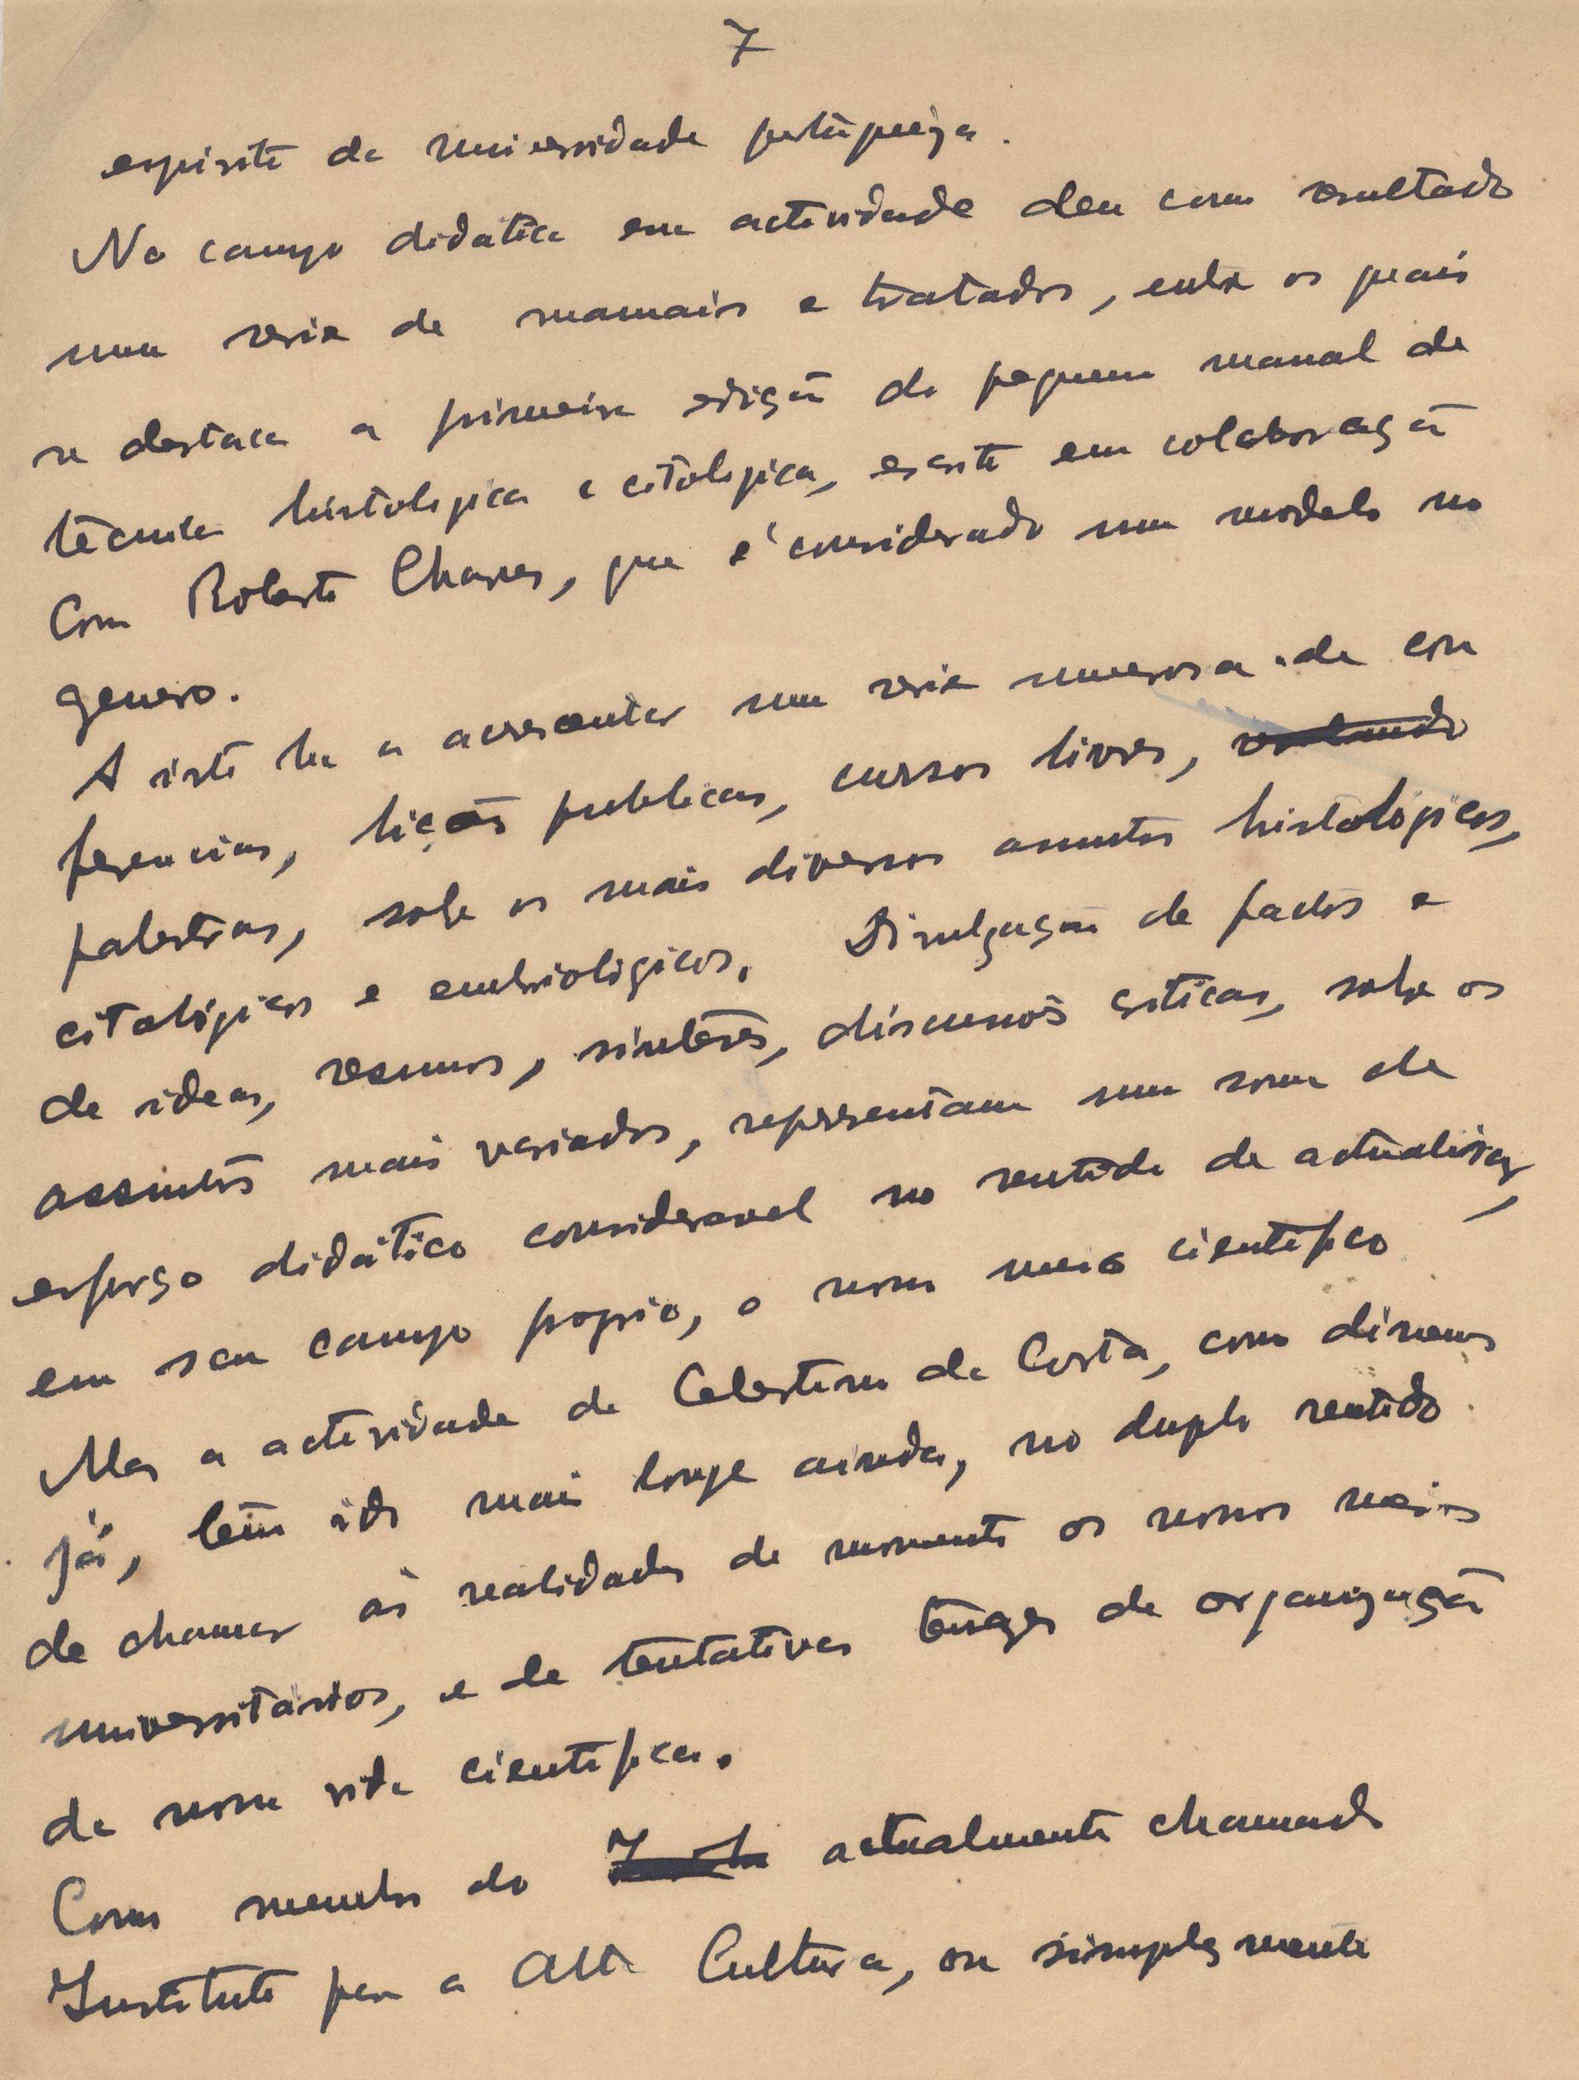 7
espirito da universidade portugueza.
No campo didatico em actividade deu como resultado
uma serie de manuais e tratados, entre os quais
se destaca a primeira edição do pequeno manual de
técnica histologica e citologica, escrito em colaboração
Com Roberto Chaves, que é considerado um modelo no
genero.
A isto ha a acrescentar uma serie numerosa de con
ferencias, lições publicas, cursos livres,
palestras, sobre os mais diversos assuntos histológicos,
citológicos e embriologicos. Divulgação de factos e
de ideas, resumos, sinteses, discussões criticas, sobre os
assuntos mais variados, representam uma soma de
esforço didático consideravel no sentido de actualisar,
em seu campo proprio, o nosso meio cientifico
Mas a actividade de Celestino da Costa, como dissemos
já, tem ido mais longe ainda, no duplo sentido
de chamar ás realidades do momento os nossos meios
universitarios, e de tentativas tenazes de organização
da nossa vida cientifica.
Como membro do actualmente chamado
Instituto para a Alta Cultura, ou simplesmente